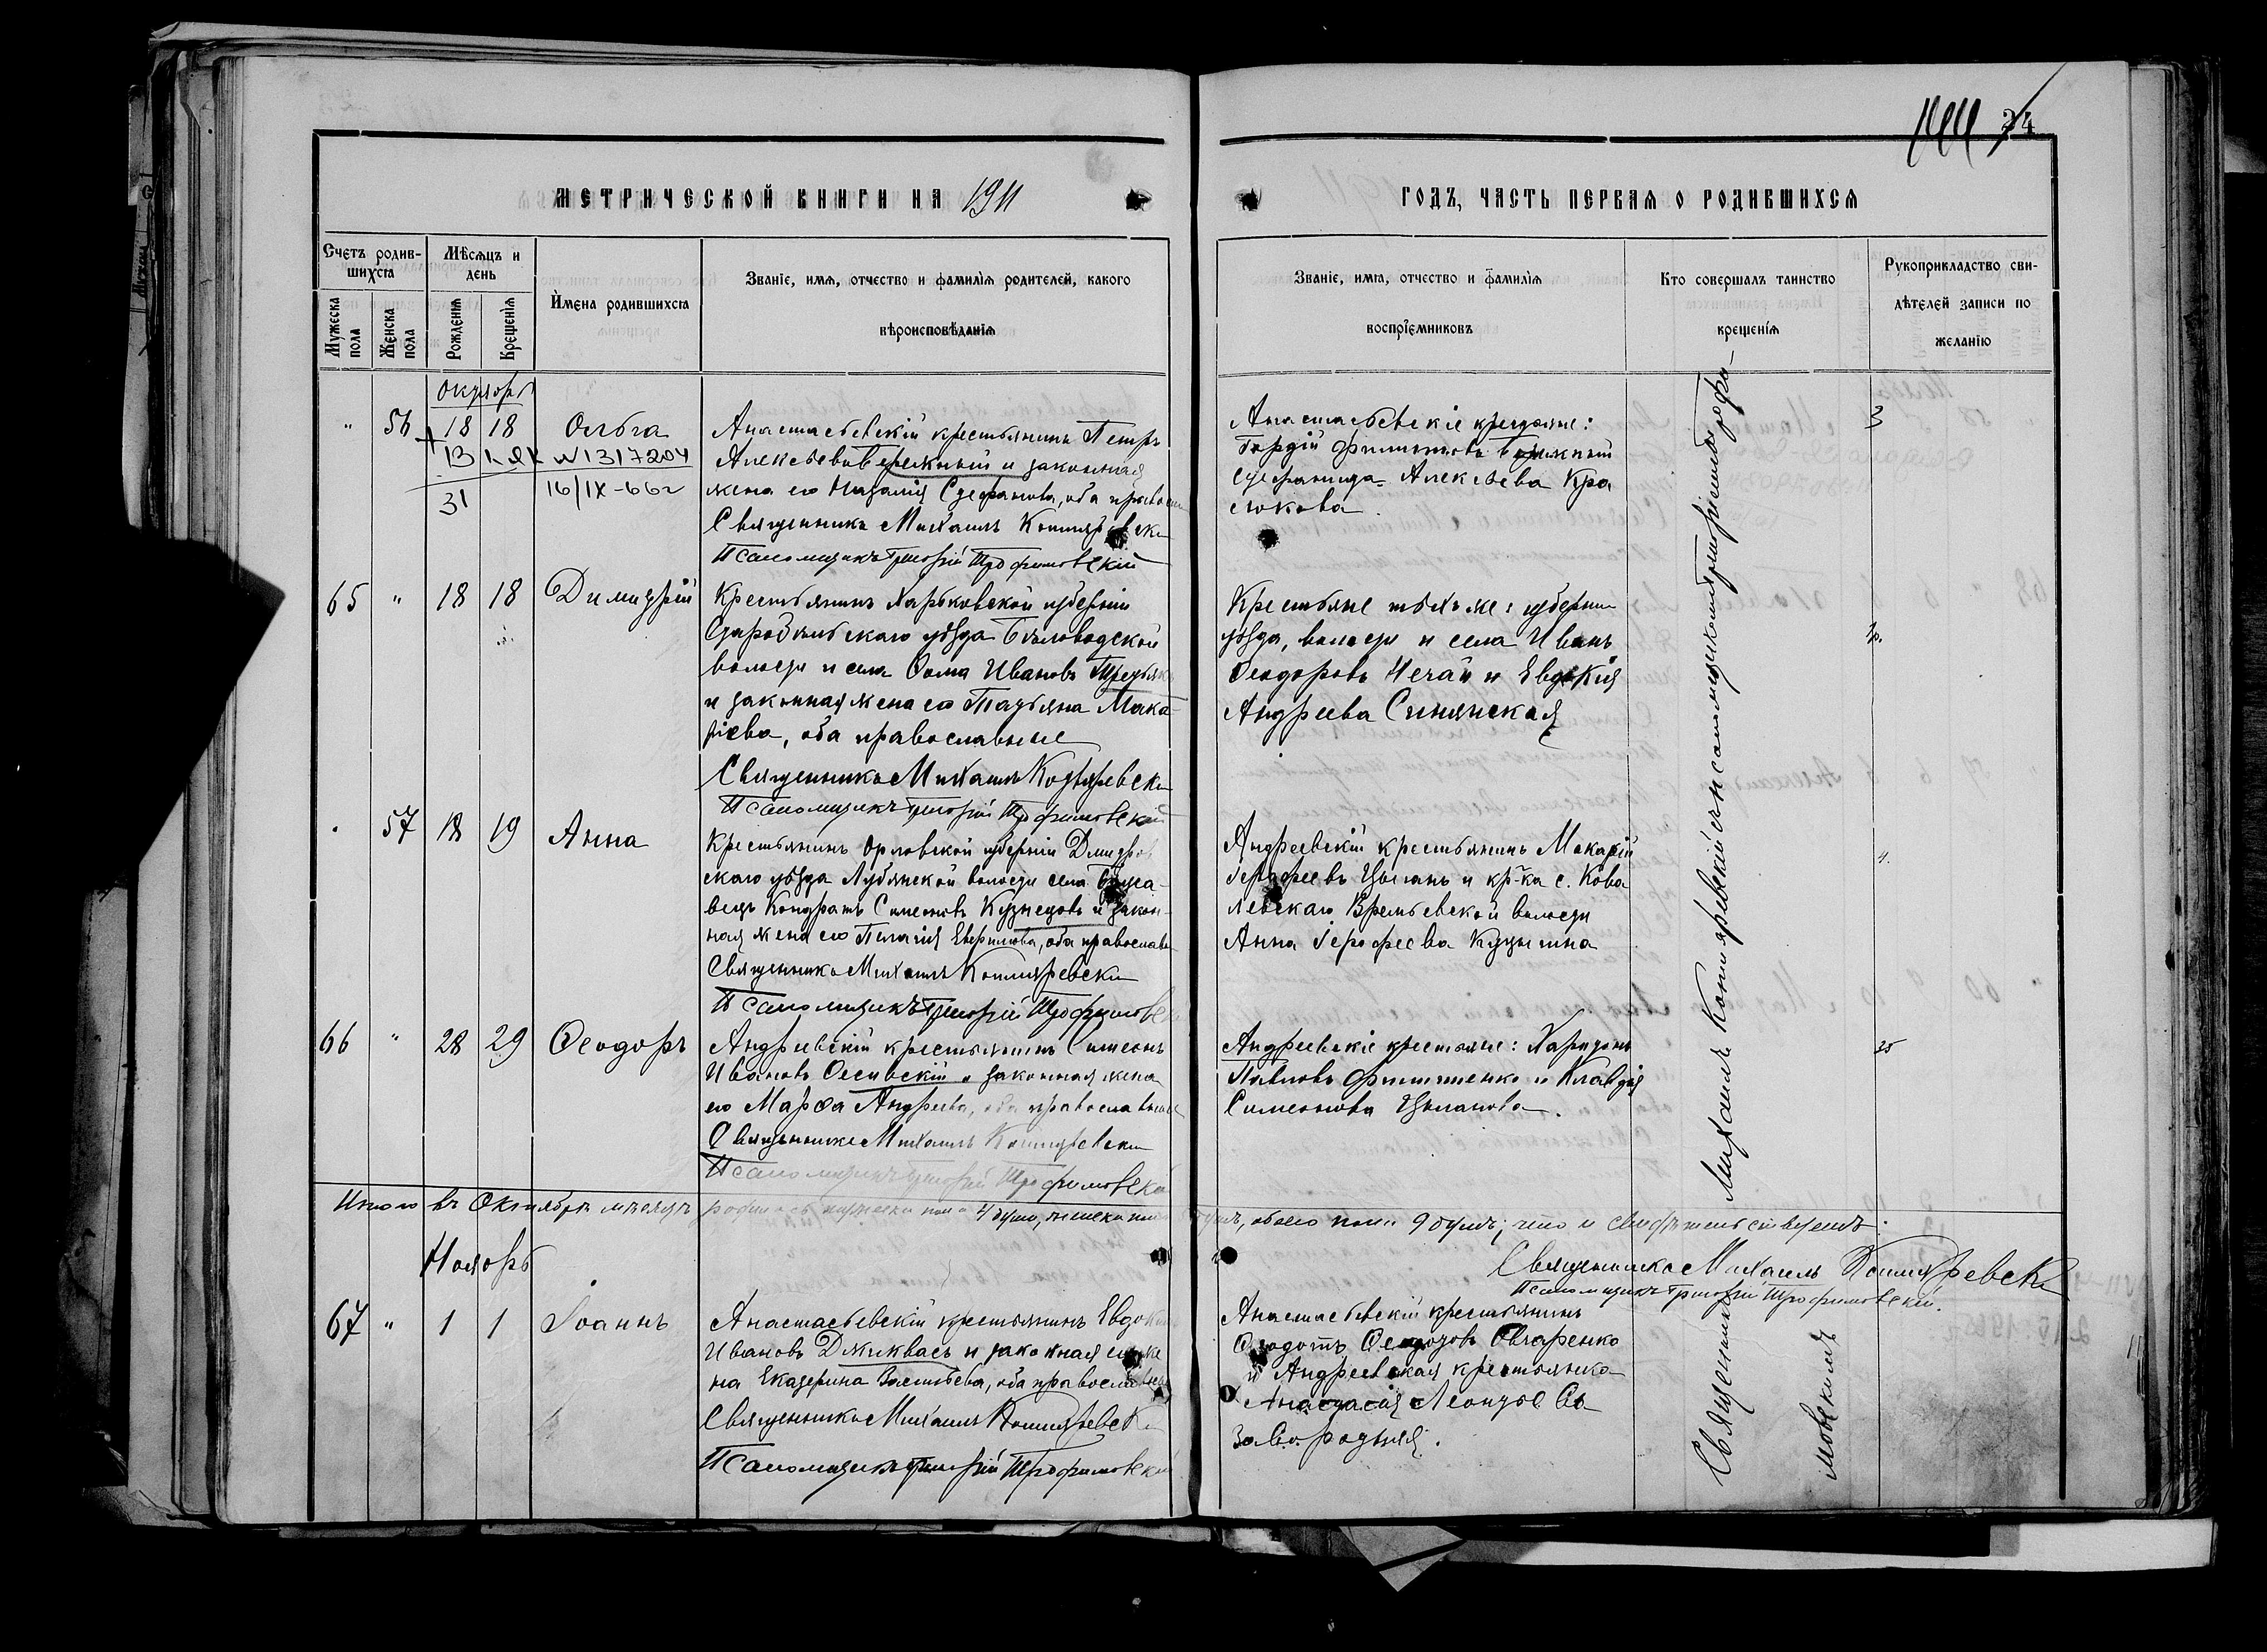 24
МЕТРИЧЕСКОЙ КНИГИ НА 1911
ГОДЪ, ЧАСТЬ ПЕРВАЯ О РОДИВШИХСЯ
Счетъ родив-
шихся
Мужеска пола
Женска пола
Мѣсяцъ и
день
Рожденія
Крещенія
Имена родившихся
Званіе, имя, отчество и фамилія родителей, какого
вѣроисповѣданія
Званіе, имя, отчество и фамилія
воспріемниковъ
Кто совершалъ таинство
крещенія
Рукоприкладство сви-
дѣтелей записи по
желанію
Октябрь
" 56 18 18 Ольга
13 № 1317204
31 16/IX-66г
Анастасьевскій крестьянинъ Петръ
Алексѣевъ Бережный и законная
жена его Наталія Стефанова, оба правосл
Священникъ Михаилъ Котляревски
Псаломщикъ Григорій Трофимовскій
Анастасьевскіе крестьяне:
Гордій Филипповъ Бережный
Стефанида Алексѣева Кра
сюкова.
3
65 " 18 18 Димитрій
Крестьянинъ Харьковской губерніи
Старобѣльскаго уѣзда Бѣловодской
волости и села Ѳома Ивановъ Третьяк
и законная жена его Татьяна Мака-
ріева, оба православные
Священникъ Михаилъ Котляревски
Псаломщикъ Григорій Трофимовскій
Крестьяне тѣхъ же: губерніи
уѣзда, волости и села Иванъ
Ѳеодоровъ Нечай и Евдокія
Андреева Синянская
57 18 19 Анна
Крестьянинъ Орловской губерніи Дмитров
скаго уѣзда Лубянской волости села
вецъ Кондратъ Симеоновъ Кузнецовъ и закон-
ная жена его Пелагія Евфимова, оба православн
Священникъ Михаилъ Котляревски
Псаломщикъ Григорій Трофимовс
Андреевскій крестьянинъ Макарій
Іерофеевъ Цыганъ и кр-ка с. Кова
левскаго Времьевской волости
Анна Іерофеева Куцына
4.
66 " 28 29 Ѳеодоръ
Андреевскій крестьянинъ Симеонъ
Ивановъ Олсивскій и законная жена
его Марѳа Андреева, оба православные
Священникъ Михаилъ Котляревски
Псаломщикъ Григорій Трофимовски
Андреевскіе крестьяне: Харитонъ
Павловъ Филипенко и Клавдія
Симеонова Цыганова.
25
Итого въ Октябрѣ мѣсяцѣ родилось мужеска пола 4 душ, женска пола душъ, обоего пола 9 душъ; что и свидѣтельствуемъ.
Священникъ Михаилъ Котляревски
Псаломщикъ Григорій Трофимовскій.
Ноябрь
67 " 1 1 Іоаннъ
Анастасьевскій крестьянинъ Евдоки
Ивановъ Джиквасъ и законная его же
на Екатерина Васильева, оба православные
Священникъ Михаилъ Котляревск
Псаломщикъ Григорій Трофимовскій
Анастасьевскій крестьянинъ
Ѳеодотъ Ѳеодотовъ Овчаренко
и Андреевская крестьянка
Анастасія Леонтьева
Завородняя.
Священникъ Михаилъ Котляревскій съ псаломщикомъ Григоріемъ Трофи-
мовскимъ